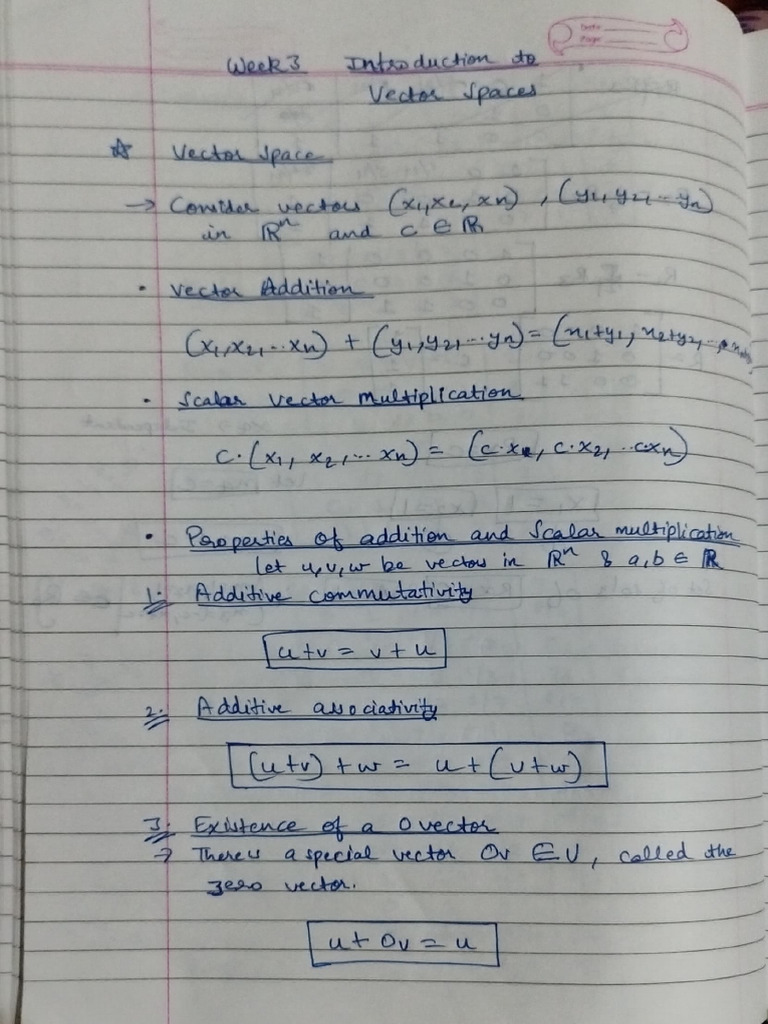 Week 3 Introduction to
Vector Spaces
☆ Vector Space
→ Consider vectors (x₁, x₂, xn), (y₁, y₂, ... yn)
in ℝⁿ and c ∈ ℝ
• Vector Addition
(x₁, x₂, ... xn) + (y₁, y₂, ... yn) = (x₁+y₁, x₂+y₂, ...
• Scalar Vector Multiplication
c·(x₁, x₂, ... xn) = (c·x₁, c·x₂, ... c·xn)
• Properties of addition and Scalar multiplication
Let u, v, w be vectors in ℝⁿ & a, b ∈ ℝ
1. Additive commutativity
u+v = v+u
2. Additive associativity
(u+v)+w = u+(v+w)
3. Existence of a 0 vector
→ There is a special vector 0v ∈ V, called the
zero vector.
u+0v = u